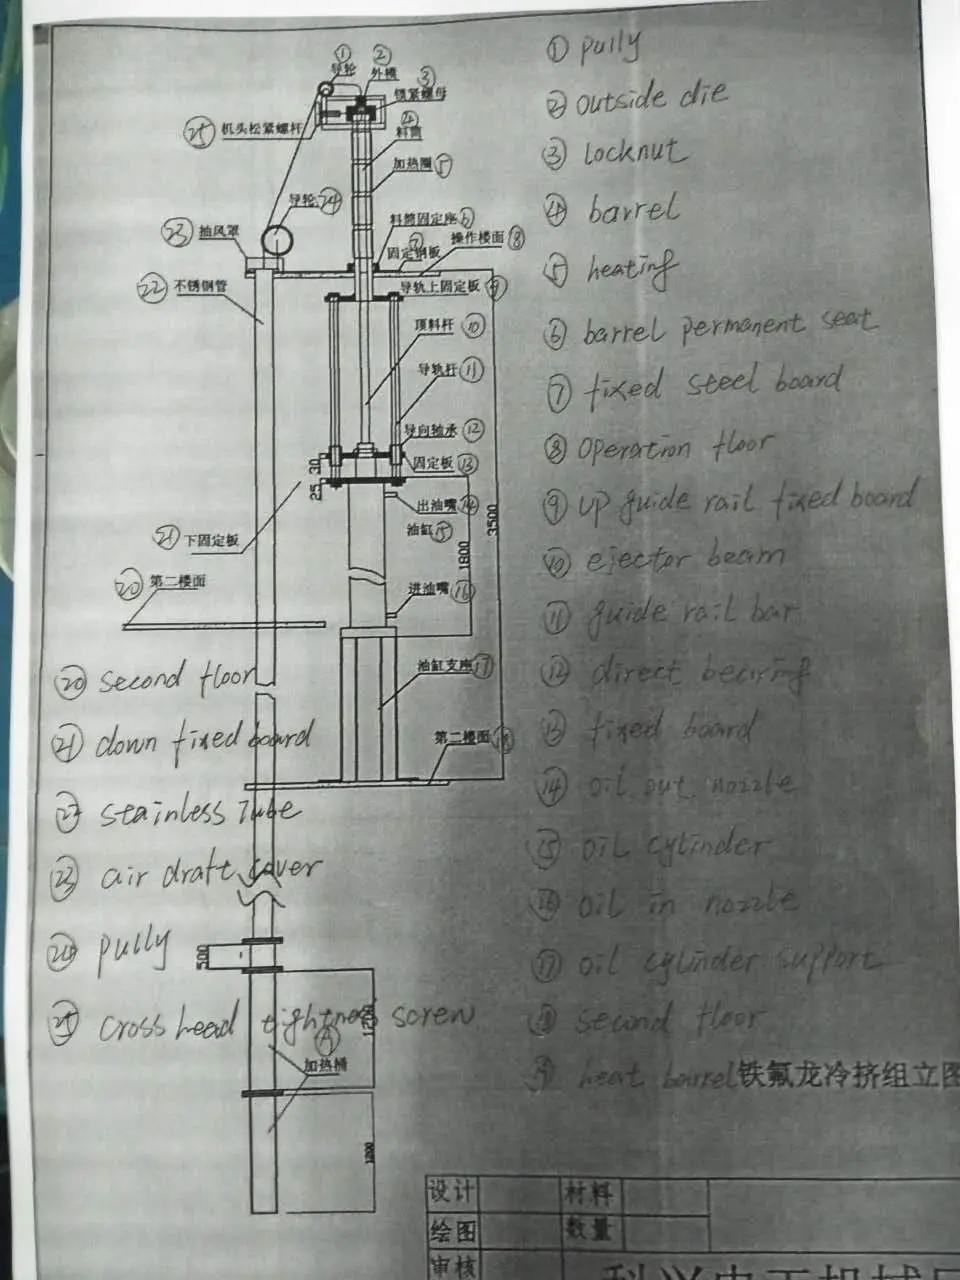 ① pully
② outside die
③ locknut
④ barrel
⑤ heating
⑥ barrel permanent seat
⑦ fixed steel board
⑧ operation floor
⑨ up guide rail fixed board
⑩ ejector beam
⑪ guide rail bar
⑫ direct bearing
⑬ fixed board
⑭ oil out nozzle
⑮ oil cylinder
⑯ oil in nozzle
⑰ oil cylinder support
⑱ second floor
⑲ heat barrel
① 导轮
② 外模
③ 锁紧螺母
④ 料筒
㉕ 机头松紧螺杆
加热圈 ⑤
导轮 ㉔
料筒固定座 ⑥
㉓ 抽风罩
操作楼面 ⑧
固定钢板 ⑦
㉒ 不锈钢管
导轨上固定板 ⑨
顶料杆 ⑩
导轨杆 ⑪
导向轴承 ⑫
固定板 ⑬
30
25
出油嘴 ⑭
油缸 ⑮
3500
1800
㉑ 下固定板
⑳ 第二楼面
进油嘴 ⑯
油缸支座 ⑰
第二楼面 ⑱
⑳ second floor
㉑ down fixed board
㉒ stainless Tube
㉓ air draft cover
㉔ pully
500
㉕ cross head tightness screw
⑲
加热桶
铁氟龙冷挤组立图
设计
材料
绘图
数量
审核